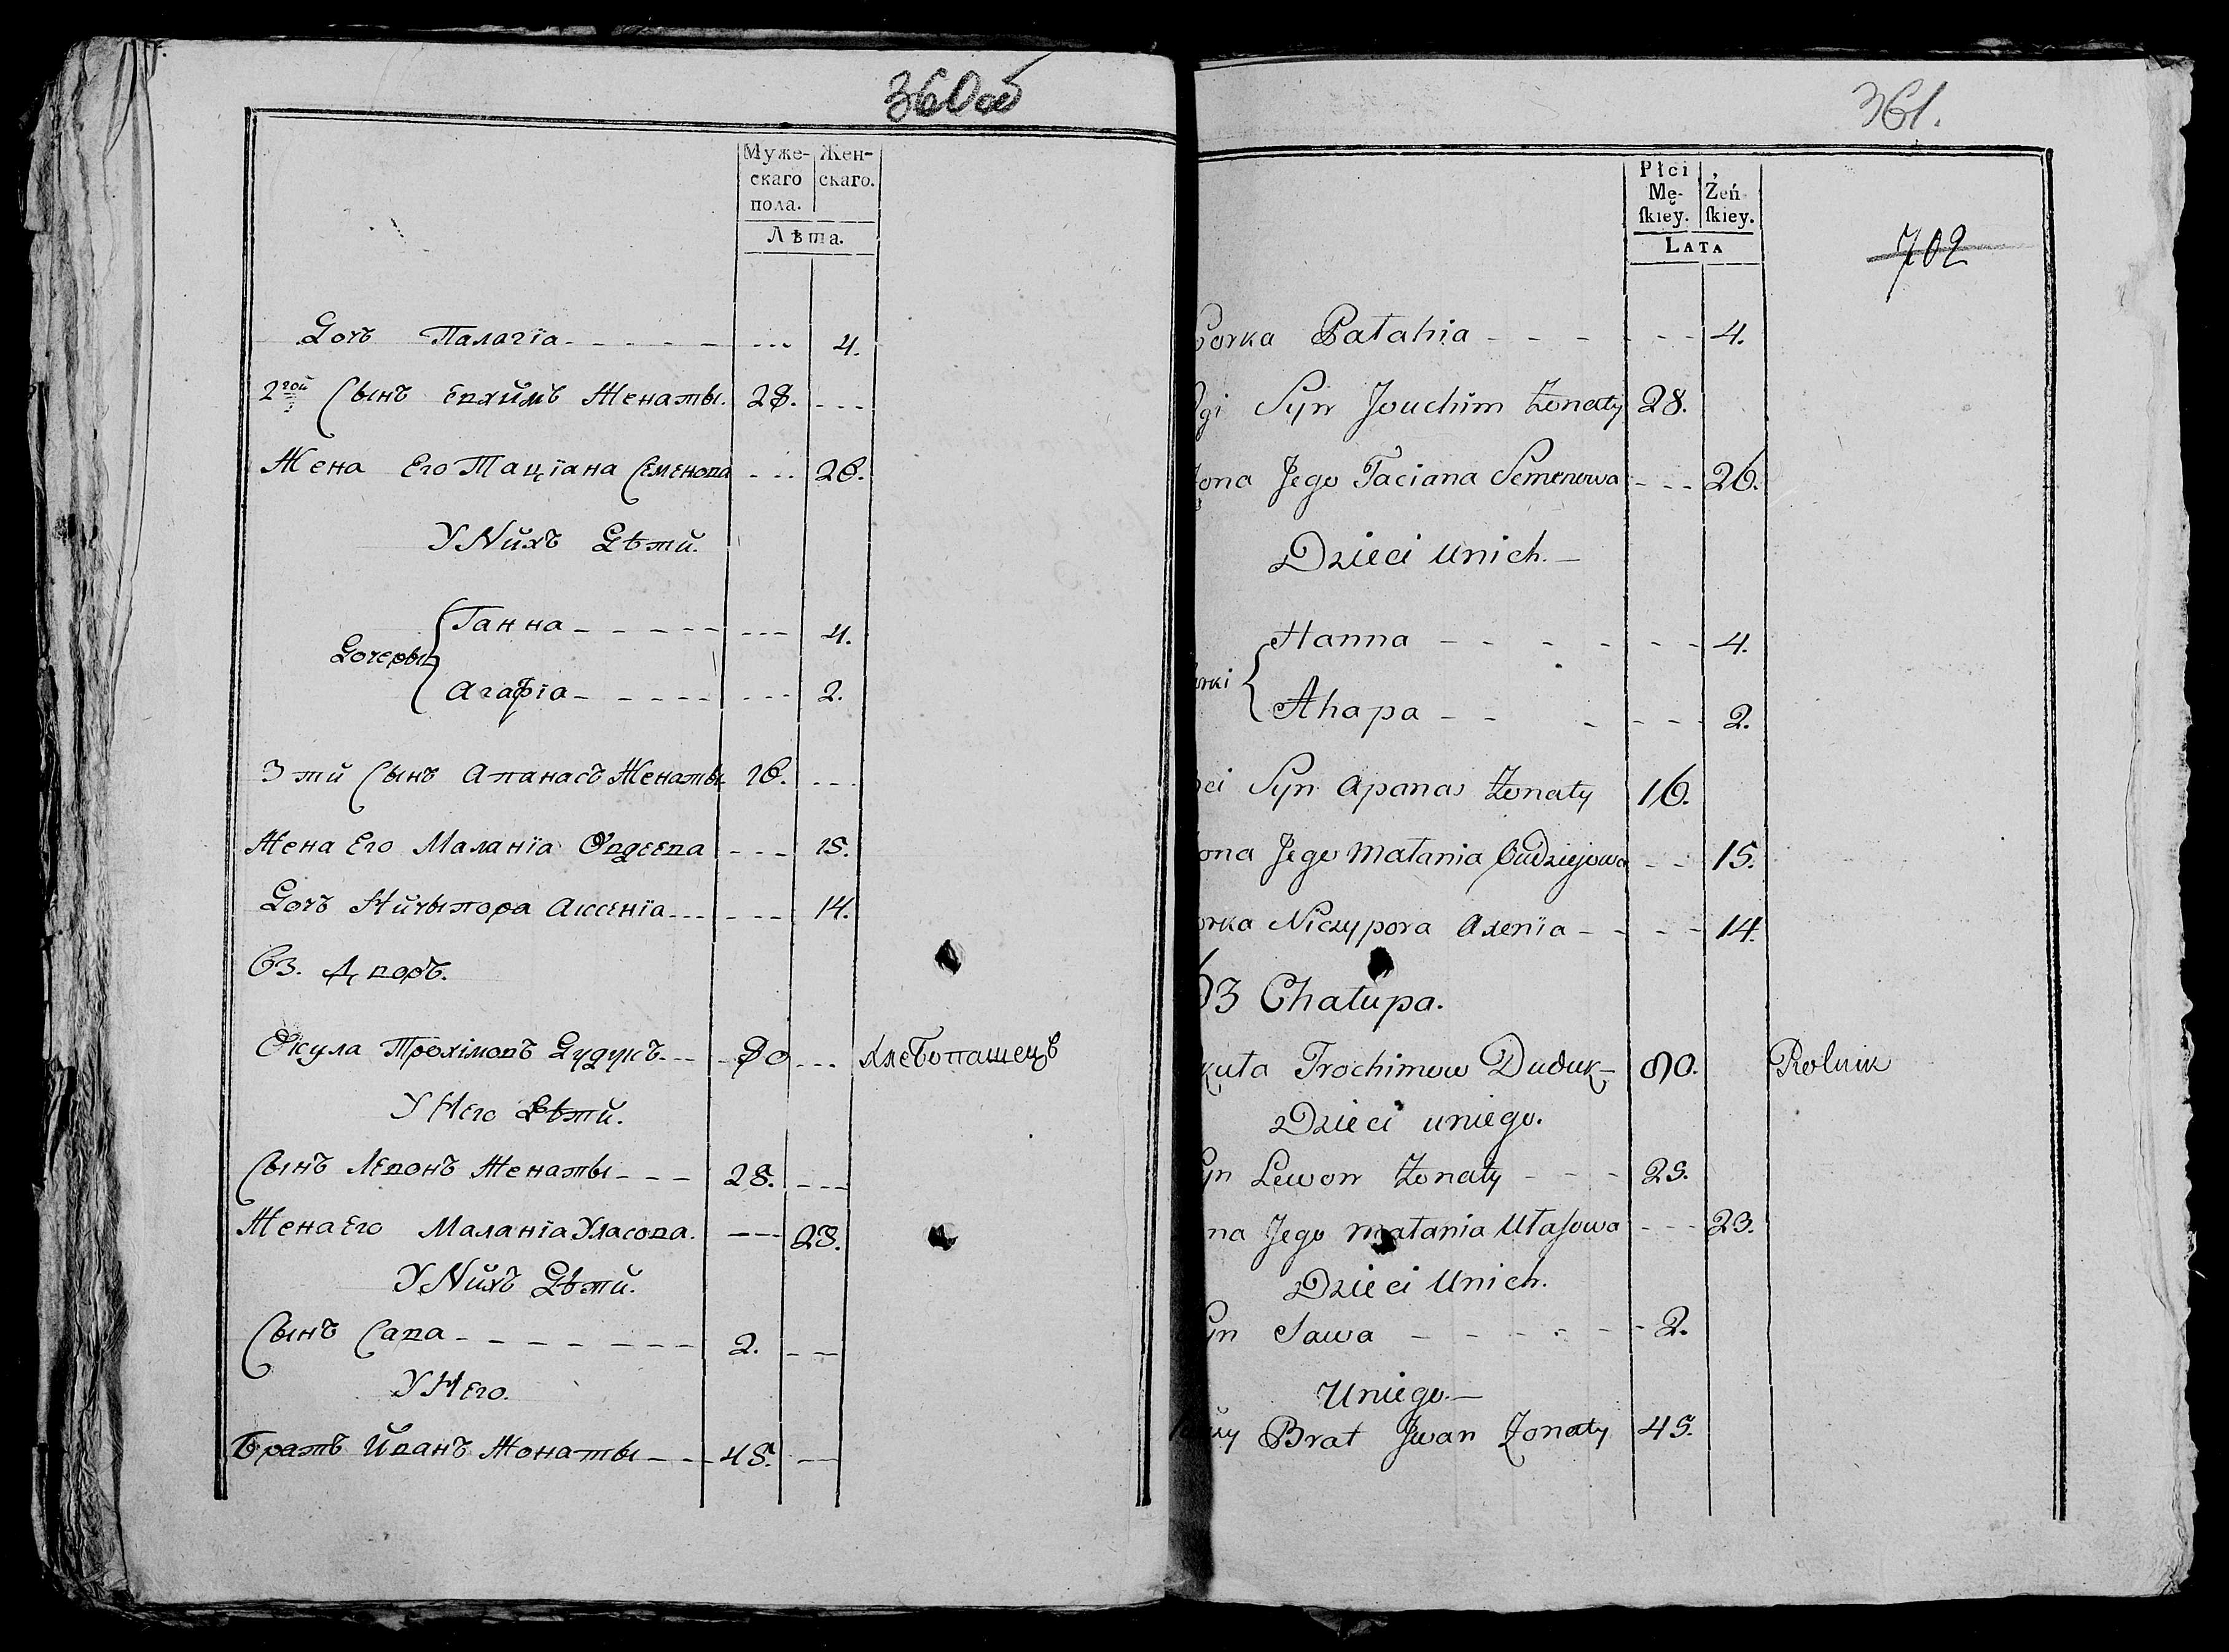 360об
Муже- Жен-
скаго скаго.
пола.
Лѣта.
Дочъ Палагїа - - - - - - - - 4.
2гой Сынъ Евхимъ Женаты. 28. - - -
Жена Его Тацїана Семенова - - - 26.
У Нихъ Дѣти.
Дочеры { Ганна - - - - - - - - 4.
Агафїа - - - - - - - - 2.
3 тй Сынъ Апанасъ Женаты 16. - - -
Жена Его Маланїа Овдеева - - - 15.
Дочъ Ничыпора Аксенїа - - - - - - 14.
63. Дворъ.
Окула Трохімовъ Дудукъ - - - 80 - - - хлебопашецъ
У Него Дѣти.
Сынъ Левонъ Женаты - - - 25. - - -
Жена Его Маланїа Уласова. - - - 23.
У Нихъ Дѣти.
Сынъ Сава - - - - - - - 2. - - -
У Него.
Братъ Иванъ Жонаты - - - 45. - - -
361.
Płci
Mę- Żeń-
ſkiey. ſkiey.
LATA
702
Corka Pałahia - - - - - 4.
2gi Syn Jouchim żonaty 28.
żona Jego Taciana Semenowa - - - 26.
Dzieci unich. -
Corki { Hanna - - - - - - 4.
Ahapa - - - - - - 2.
3ci Syn Apanas żonaty 16.
żona Jego Małania Oudziejowa - - 15.
Corka Niczypora Axenïa - - - - 14.
63 Chałupa.
Okuła Trochimow Duduk - 80. Rolnik
Dzieci uniego.
Syn Lewon żonaty - - - 25.
żona Jego Małania Ułasowa - - - 23.
Dzieci Unich.
Syn Sawa - - - - - - 2.
Uniego. -
Brat Jwan Żonaty 45.